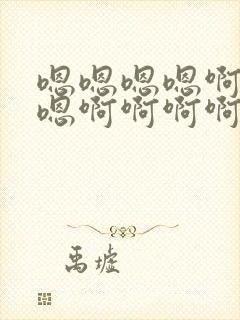 嗯嗯嗯嗯啊
嗯啊啊啊啊
禹墟